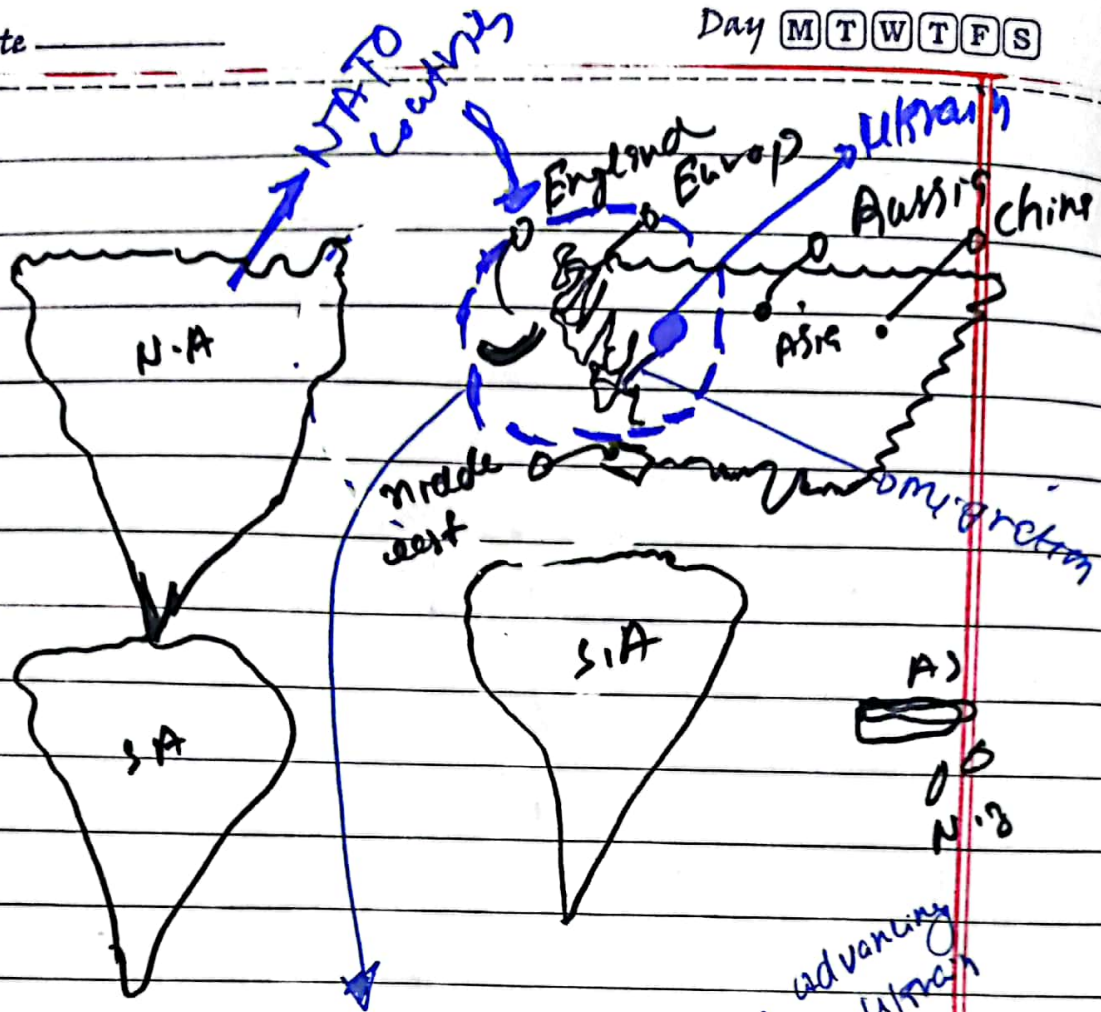 te
Day M T W T F S
NATO
Countries
England
Europ
Ukrain
Russia
China
N.A
Asia
middle
east
migration
S.A
S.A
AS
N.Z
advancing
Ukrain